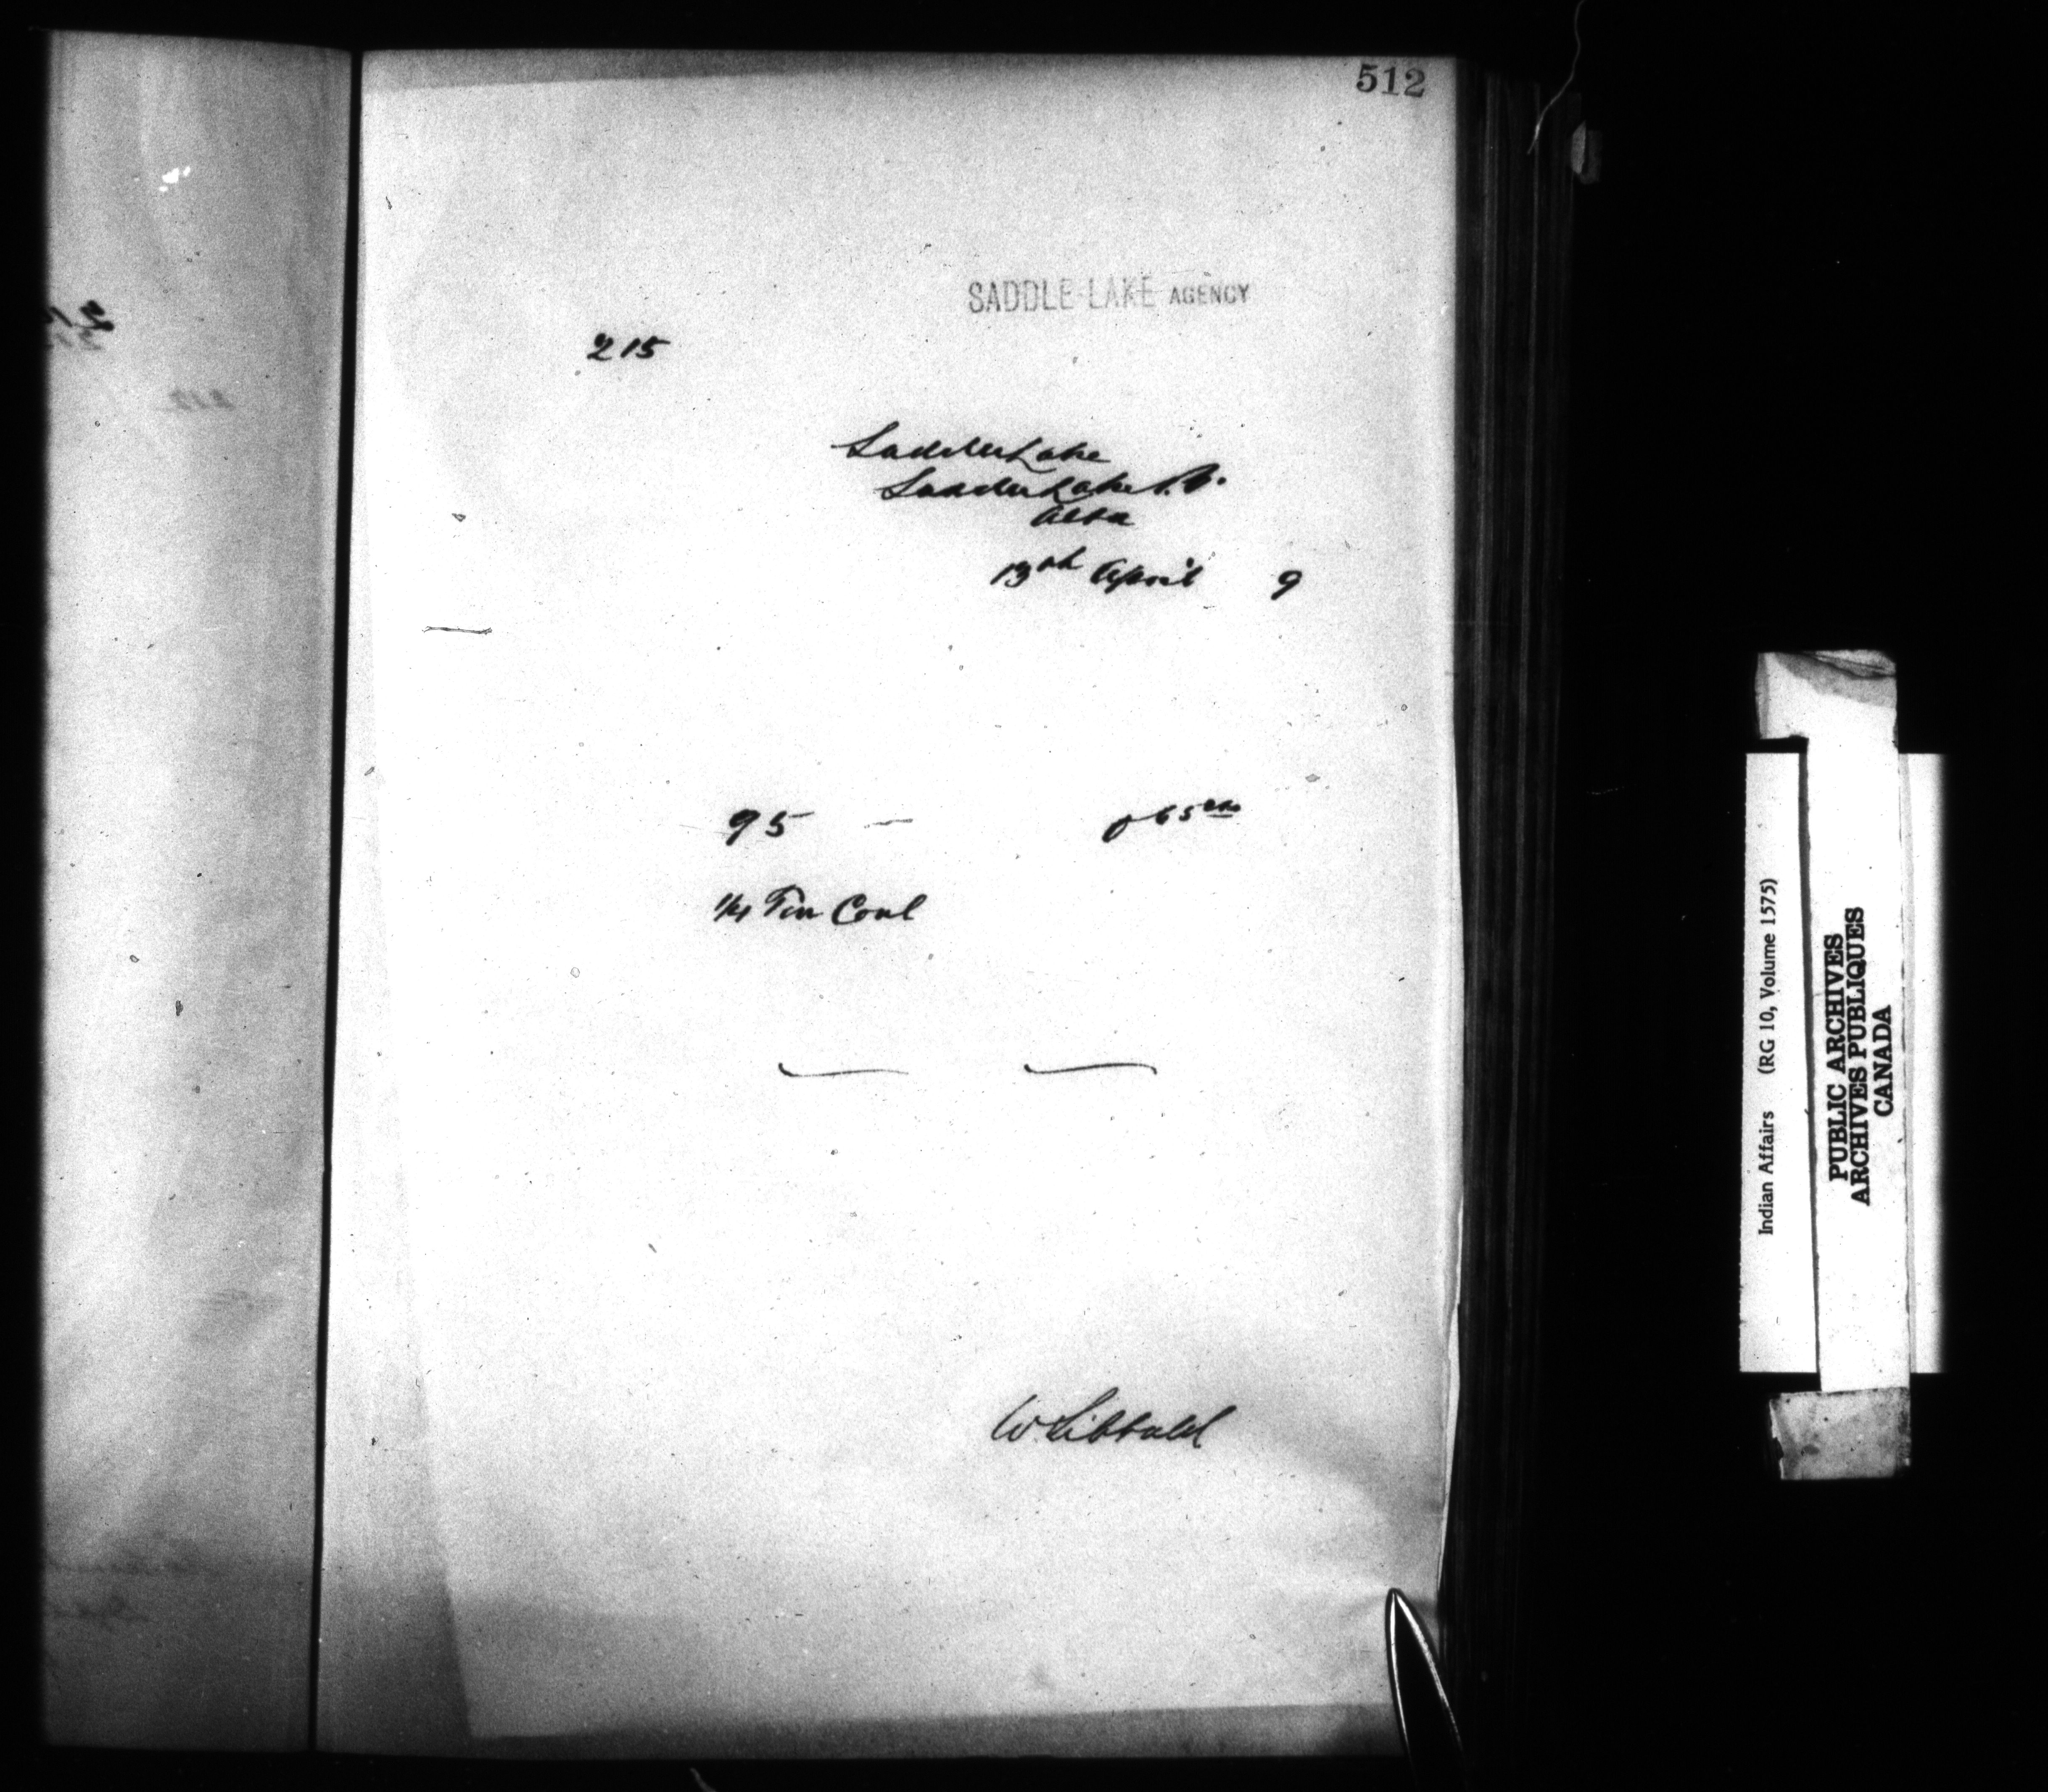 512
SADDLE LAKE AGENCY
215
Saddle Lake
Saddle Lake
Alta
13th April 9
95 — 65 cts
1/4 Ton Coal
W Sibbald
Indian Affairs (RG 10, Volume 1575)
PUBLIC ARCHIVES
ARCHIVES PUBLIQUES
CANADA